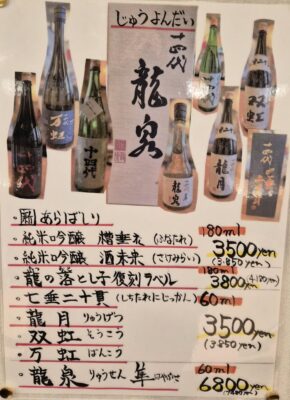 じゅうよんだい
十四代
龍泉
万虹
十四代
龍泉
龍月
双虹
・角新 あらばしり
・純米吟醸 槽垂れ (ふなたれ) 180ml
3500yen
(3.850yen)
・純米吟醸 酒未来 (さけみらい)
・龍の落とし子 復刻ラベル 180ml
3800yen (4.180yen)
・七垂二十貫 (しちたれにじっかん) 60ml
・龍月 りゅうげつ
3500yen
(3.850yen)
・双虹 そうこう
・万虹 ばんこう
・龍泉 りゅうせん 隼 はやぶさ 60ml
6800yen